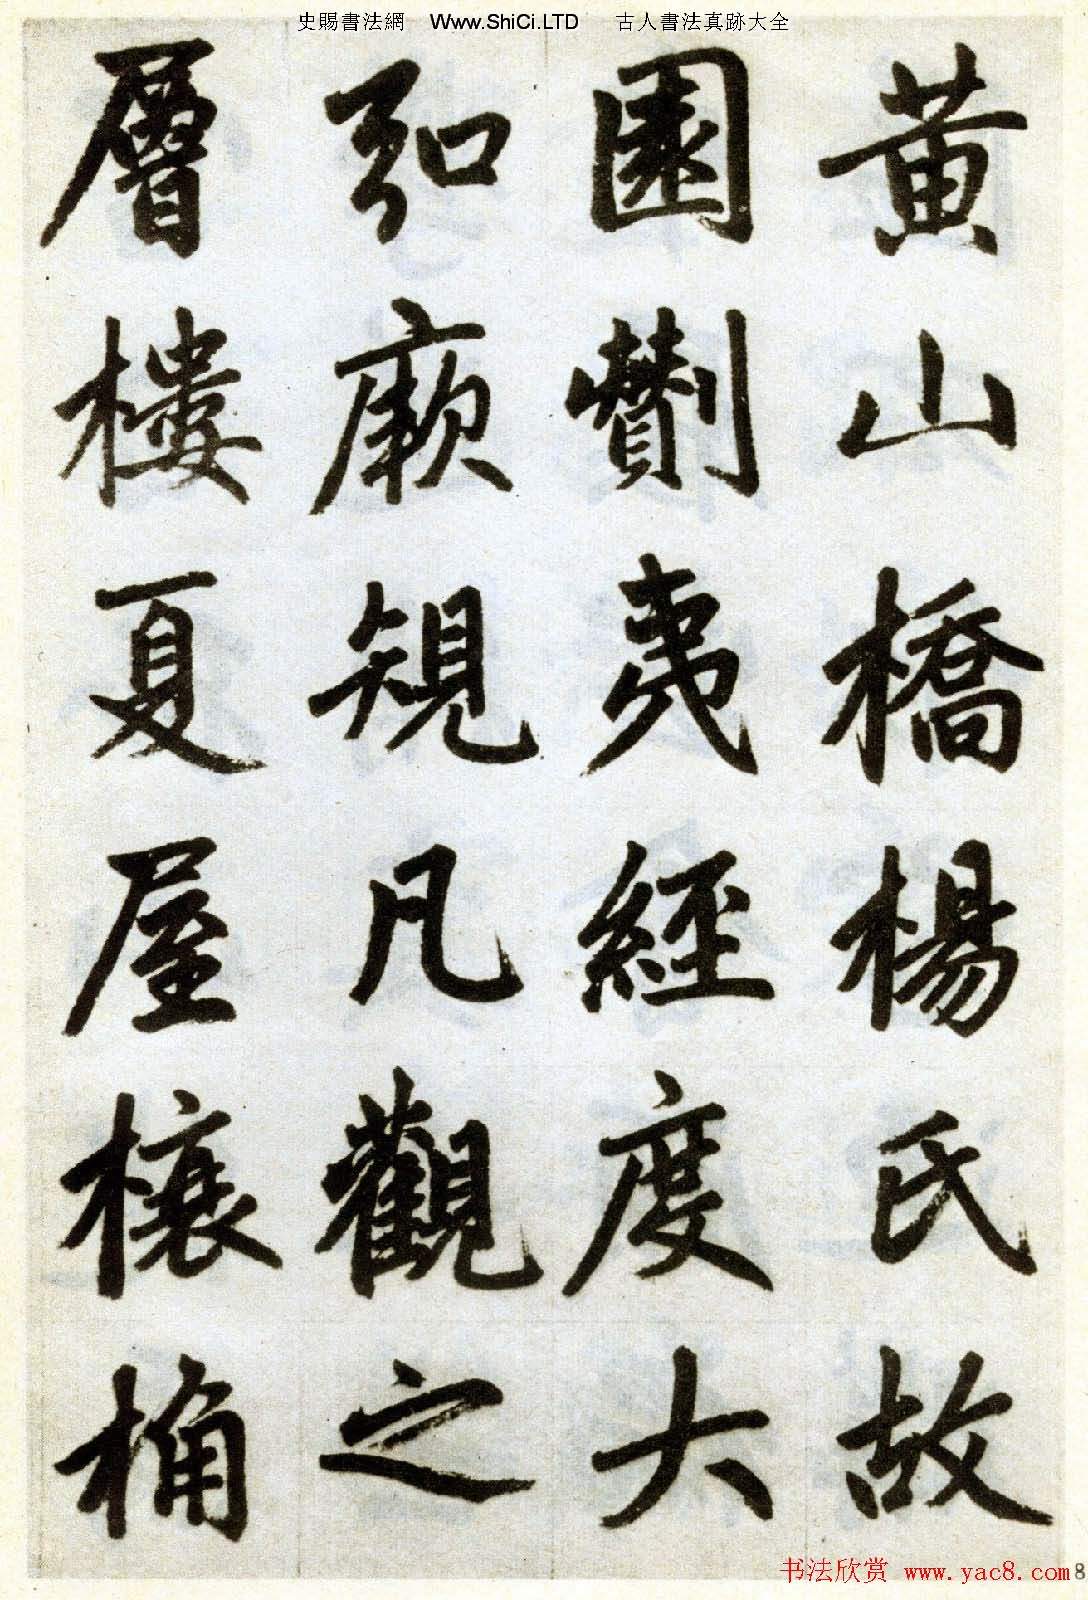 史賜書法網 Www.ShiCi.LTD 古人書法真跡大全
黄山橋楊氏故
園劗夷經度大
弘厥規凡觀之
層樓夏屋榱桷
书法欣赏 www.yac8.com
8